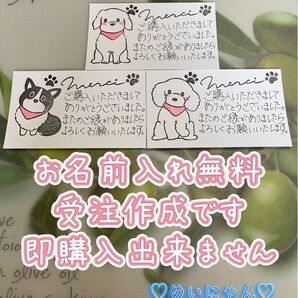 merci
ご購入いただきまして
ありがとうございました。
またのご縁がありましたら
よろしくお願いいたします。
merci
ご購入いただきまして
ありがとうございました。
またのご縁がありましたら
よろしくお願いいたします。
merci
ご購入いただきまして
ありがとうございました。
またのご縁がありましたら
よろしくお願いいたします。
お名前入れ無料
受注作成です
即購入出来ません
olive oil
♡めいにゃん♡